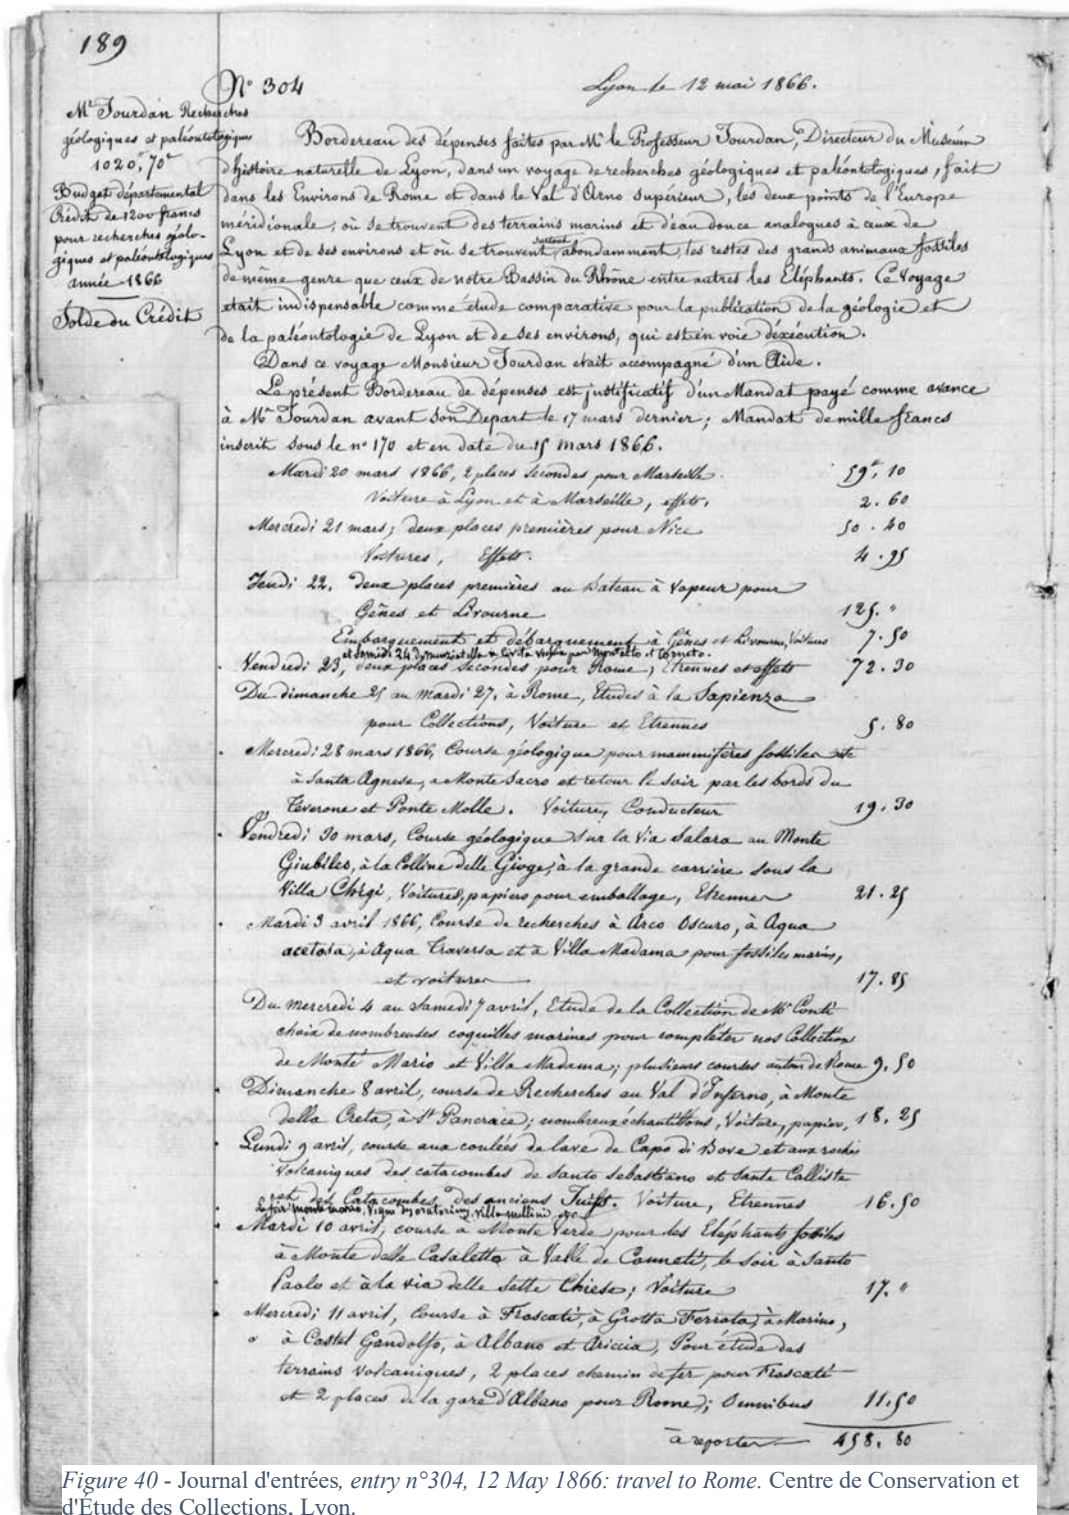 189
N° 304
Lyon le 12 mai 1866.
Mr Jourdan Recherches
géologiques et paléontologiques
1020f,70c
Budget départemental
Crédit de 1200 francs
pour recherches géolo-
giques et paléontologiques
année 1866
Solde du Crédit
Bordereau des dépenses faites par Mr le Professeur Jourdan, Directeur du Muséum
d'histoire naturelle de Lyon, dans un voyage de recherches géologiques et paléontologiques, fait
dans les Environs de Rome et dans le Val d'Arno supérieur, les deux points de l'Europe
méridionale, où se trouvent des terrains marins et d'eau douce analogues à ceux de
Lyon et de ses environs et où se trouvent surtout abondamment, les restes des grands animaux fossiles
de même genre que ceux de notre Bassin du Rhône entre autres les Eléphants. Ce voyage
etait indispensable comme étude comparative pour la publication de la géologie et
de la paléontologie de Lyon et de ses environs, qui est en voie d'exécution.
Dans ce voyage Monsieur Jourdan etait accompagné d'un Aide.
Le présent Bordereau de dépenses est justificatif d'un Mandat payé comme avance
à Mr Jourdan avant son Depart le 17 mars dernier; Mandat de mille francs
inscrit sous le n° 170 et en date du 15 mars 1866.
Mardi 20 mars 1866, 2 places secondes pour Marseille 59f, 10
Voiture à Lyon et à Marseille, effets. 2. 60
Mercredi 21 mars; deux places premières pour Nice 50. 40
Voitures, Effets. 4. 95
Jeudi 22, deux places premières au bateau à vapeur pour
Gênes et Livourne 125. "
Embarquement et débarquement à Gênes et Livourne, Voitures 7. 50
et samedi 24 à Civita par Montalto et Corneto.
Vendredi 23, deux places secondes pour Rome, Etrennes et effets 72. 30
Du dimanche 25 au mardi 27, à Rome, Etudes à la Sapienza
pour Collections, Voiture et Etrennes 5. 80
Mercredi 28 mars 1866, Course géologique pour mammifères fossiles etc
à Santa Agnese, a Monte Sacro et retour le soir par les bords du
Teverone et Ponte Molle. Voiture, Conducteur 19. 30
Vendredi 30 mars, Course géologique sur la Via Salara au Monte
Giubileo, à la Colline delle Gioge, à la grande carrière sous la
Villa Chigi, Voitures, papiers pour emballage, Etrennes 21. 25
Mardi 3 avril 1866, Course de recherches à Arco Oscuro, à Aqua
acetosa, à Aqua Traversa et à Villa Madama pour fossiles marins,
et voitures 17. 85
Du mercredi 4 au Samedi 7 avril, Etude de la Collection de Mr Conti
choix de nombreuses coquilles marines pour compléter nos Collection
de Monte Mario et Villa Madama; plusieurs courses autour de Rome 9, 50
Dimanche 8 avril, course de Recherches au Val d'Inferno, à Monte
della Creta, à St Pancrace; nombreux échantillons, Voiture, papiers, 18. 25
Lundi 9 avril, course aux coulées de lave de Capo di Bove et aux roches
volcaniques des catacombes de Santo Sebastiano et Sante Calliste
et des Catacombes des anciens Juifs. Voiture, Etrennes 16. 50
Le soir Monte mario, Vigne Villa Mellini etc
Mardi 10 avril, course a Monte Verde pour les Eléphants fossiles
à Monte delle Casaletto à Valle de Canneti, le soir à Santo
Paolo et à la via delle Sette Chiese; Voiture 17. "
Mercredi 11 avril, Course à Frascati, à Grotta Ferrata, à Marino,
à Castel Gandolfo, à Albano et Ariccia, Pour étude des
terrains volcaniques, 2 places chemin de fer pour Frascati
et 2 places de la gare d'Albano pour Rome; Omnibus 11. 50
à reporter 458. 80
Figure 40 - Journal d'entrées, entry n°304, 12 May 1866: travel to Rome. Centre de Conservation et
d'Étude des Collections, Lyon.